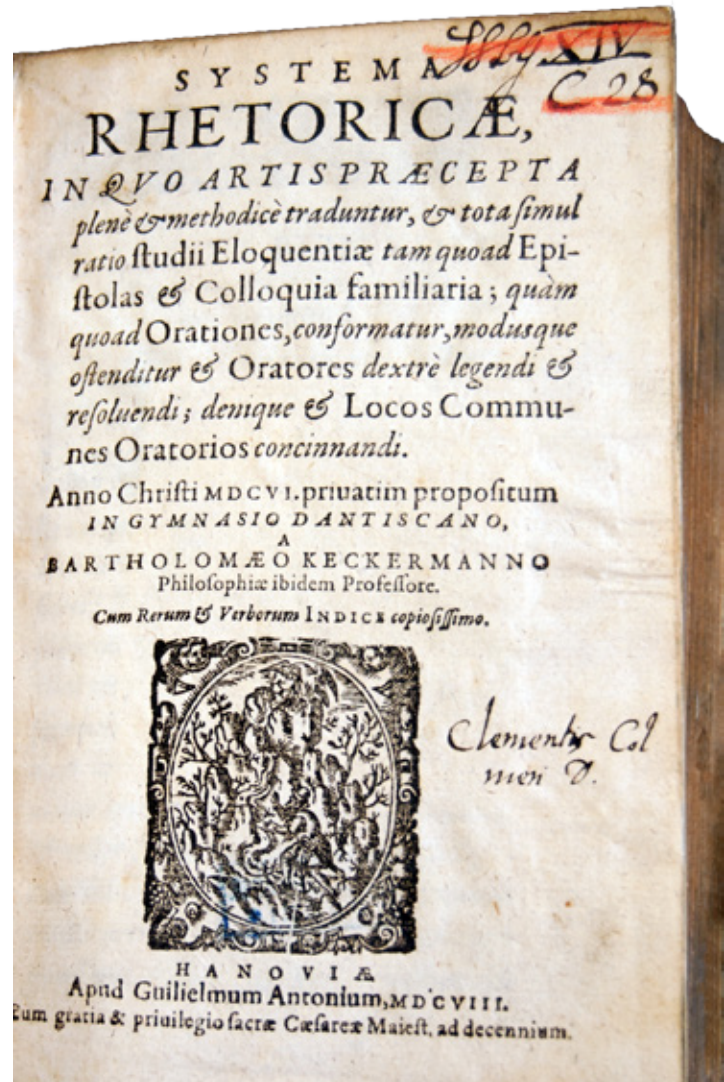 SYSTEMA
XIV
C 28
RHETORICÆ,
IN QVO ARTIS PRÆCEPTA
plenè & methodicè traduntur, & tota ſimul
ratio ſtudii Eloquentiæ tam quoad Epi-
ſtolas & Colloquia familiaria; quàm
quoad Orationes, conformatur, modusque
oſtenditur & Oratores dextrè legendi &
reſoluendi; denique & Locos Commu-
nes Oratorios concinnandi.
Anno Chriſti MDCVI. priuatim propoſitum
IN GYMNASIO DANTISCANO,
A
BARTHOLOMÆO KECKERMANNO
Philoſophiæ ibidem Profeſſore.
Cum Rerum & Verborum INDICE copioſiſſimo.
Clementis Col
meri D.
HANOVIÆ
Apud Guilielmum Antonium, MDCVIII.
Cum gratia & priuilegio ſacræ Cæſareæ Maieſt. ad decennium.